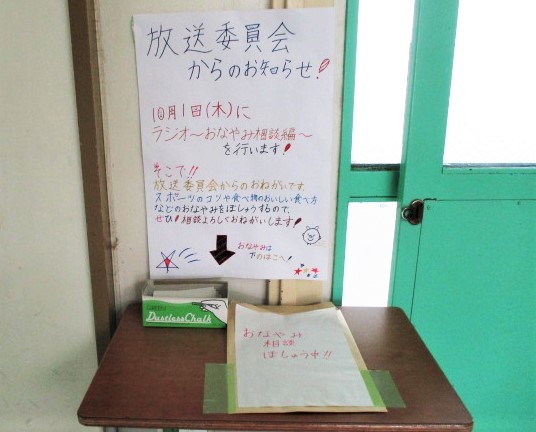 放送委員会
からのお知らせ!
10月1日(木)に
ラジオ～おなやみ相談編～
を行います!
そこで!!
放送委員会からのおねがいです。
スポーツのコツや食べ物のおいしい食べ方
などのおなやみをぼしゅうするので、
ぜひ!相談よろしくおねがいします!
おなやみは
下のはこへ!
GREEN
DustlessChalk
おなやみ
相談
ぼしゅう中!!